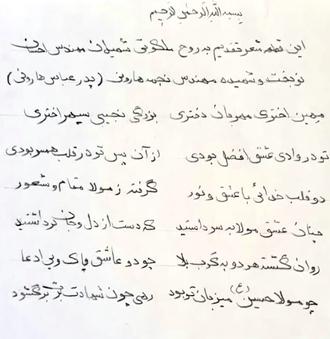 بسم الله الرحمن الرحیم
این قطعه شعر تقدیم به روح ملکوتی شهیدان مهندس
نوبخت و شهیده مهندس نجمه هارونی (پدر عباس هارونی)
مهین اختری مهربان دختری بزرگی نجیبی سپهر اختری
تو در وادی عشق افضل بودی از آن پس تو در قلب همسر بودی
دو قلب خدائی با عشق و نور گرفته ز مولا مقام و شعور
چنان عشق مولا به سر داشتید که دست از دل و جان برداشتید
روان گشته هر دو به کرب بلا چو دو عاشق پاک و بی ادعا
چو مولا حسین (ع) میزبان تو بود رهی چون شهادت برگشود